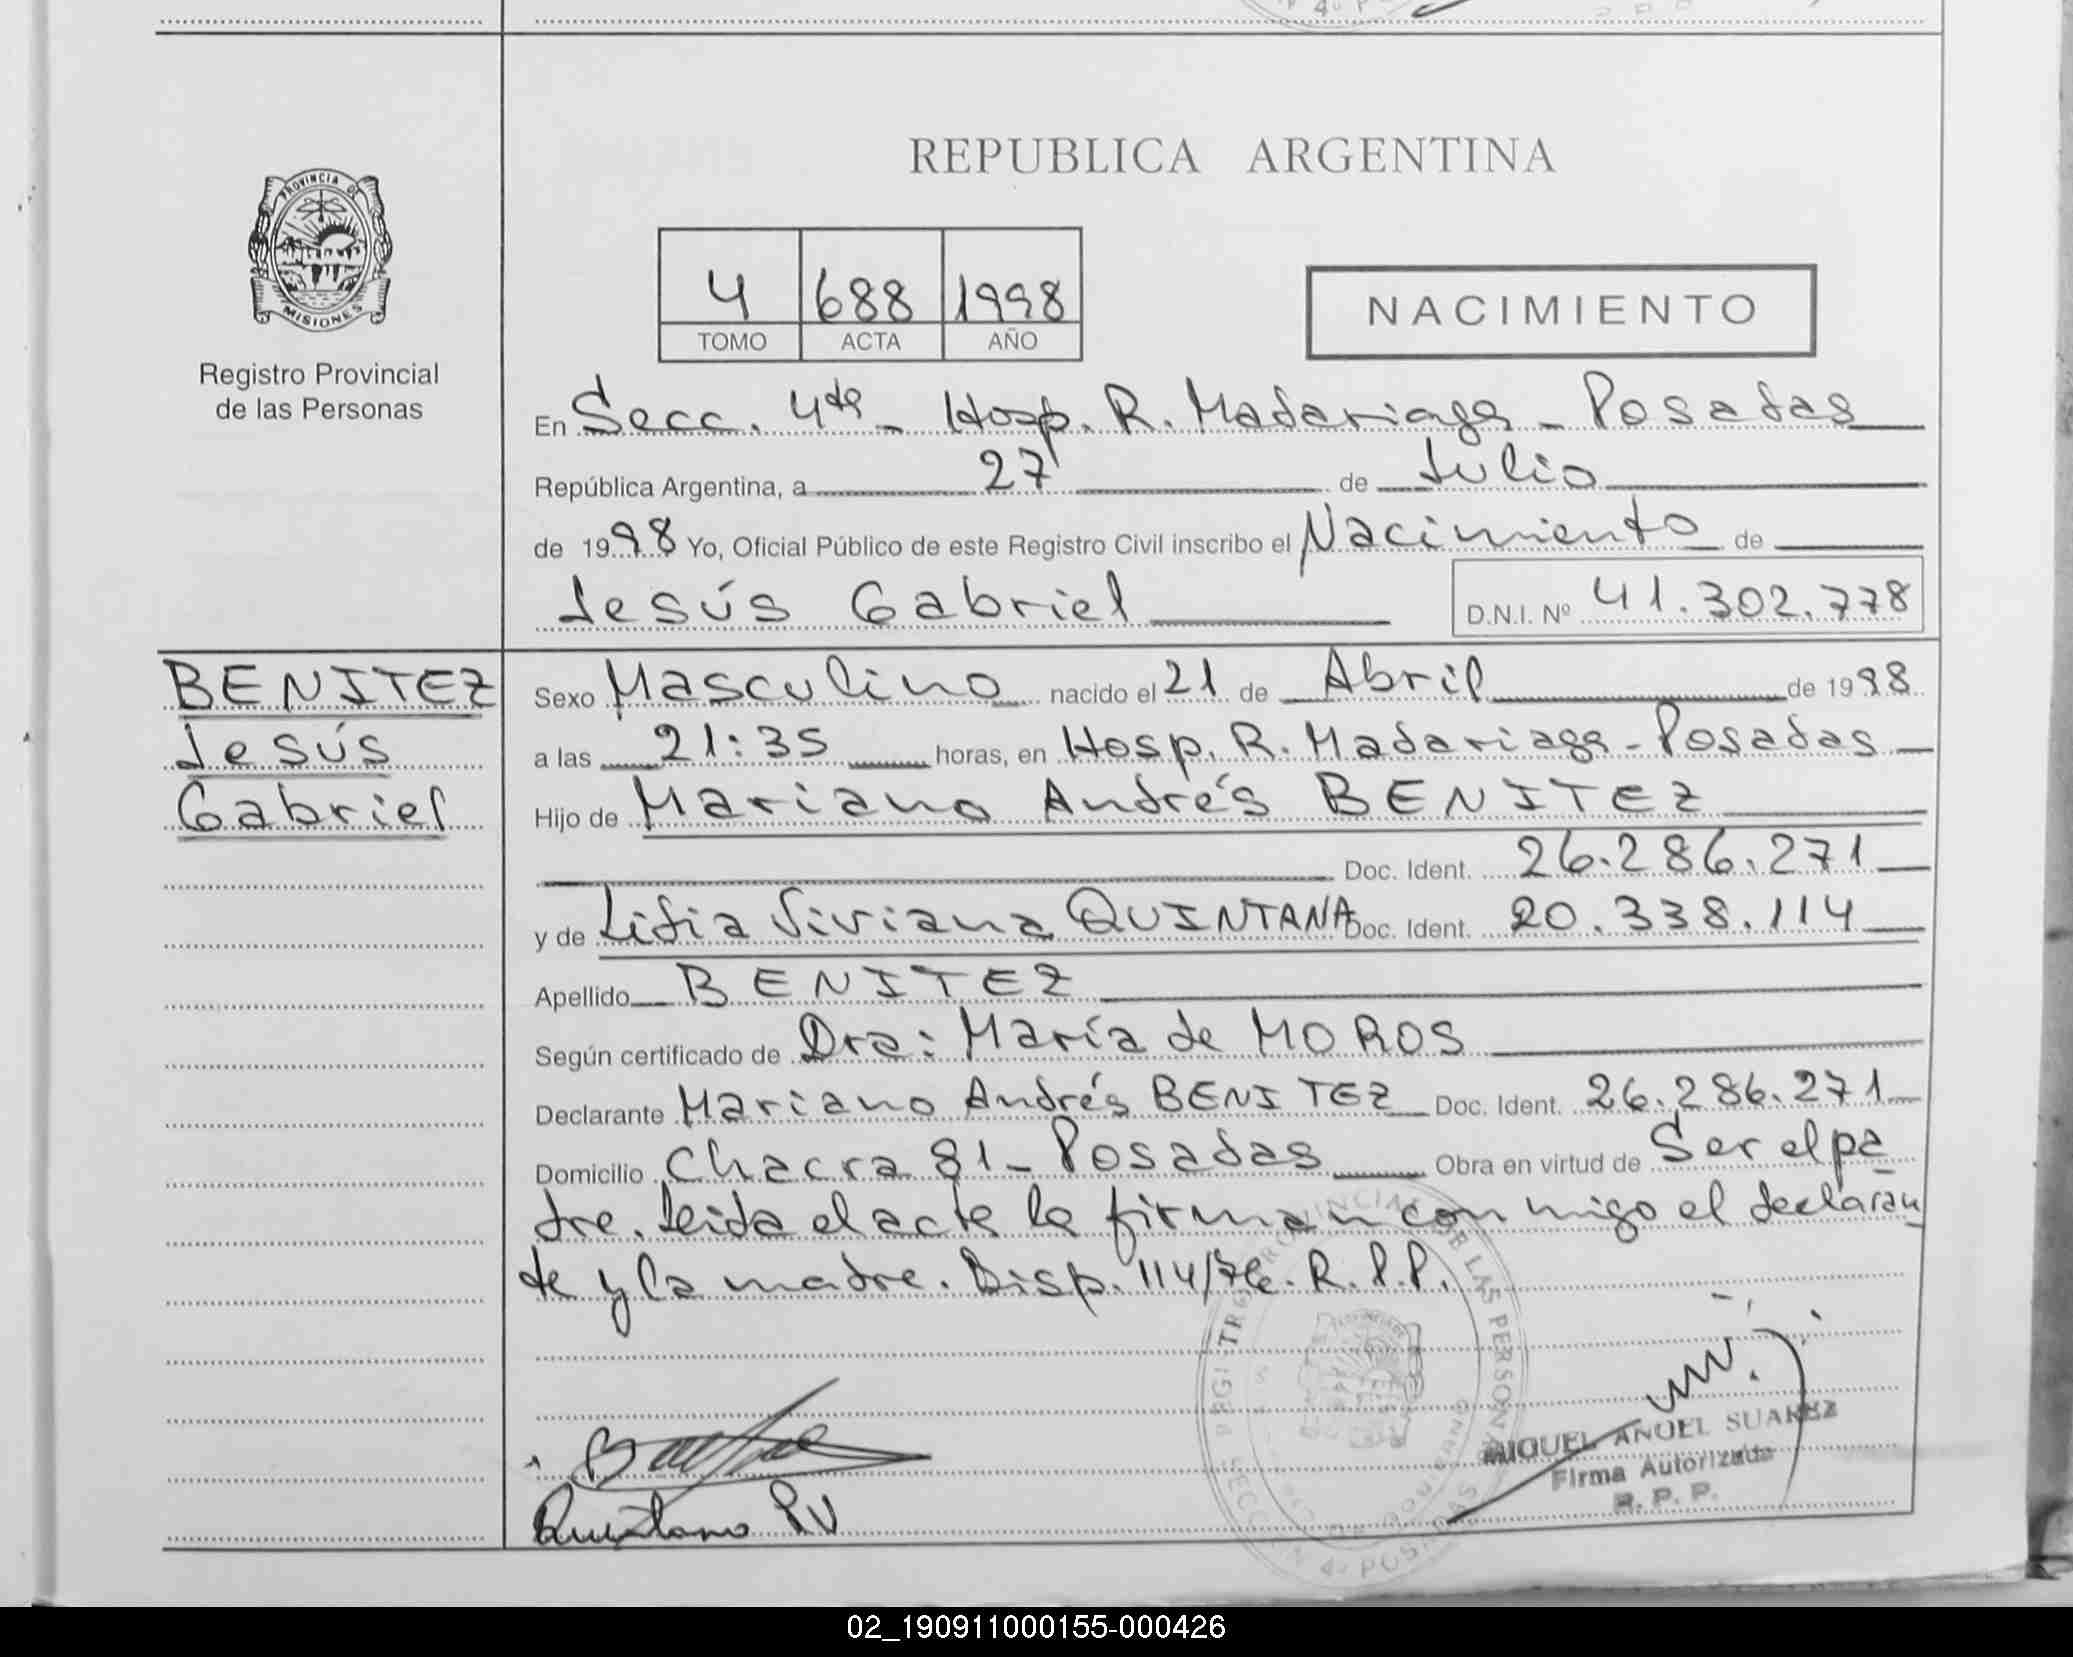 REPUBLICA ARGENTINA
PROVINCIA DE
MISIONES
Registro Provincial
de las Personas
4 688 1998
TOMO ACTA AÑO
NACIMIENTO
En Secc. 4ta - Hosp. R. Madariaga - Posadas
República Argentina, a 27 de Julio
de 1998 Yo, Oficial Público de este Registro Civil inscribo el Nacimiento de
Jesús Gabriel D.N.I. Nº 41.302.778
BENITEZ
Jesús
Gabriel
Sexo Masculino nacido el 21 de Abril de 1998
a las 21:35 horas, en Hosp. R. Madariaga - Posadas
Hijo de Mariano Andrés BENITEZ
Doc. Ident. 26.286.271
y de Lidia Viviana QUINTANA Doc. Ident. 20.338.114
Apellido BENITEZ
Según certificado de Dra: María de MOROS
Declarante Mariano Andrés BENITEZ Doc. Ident. 26.286.271
Domicilio Chacra 81 - Posadas Obra en virtud de Ser el pa
dre. Leida el acta la firman conmigo el declaran
te y la madre. Disp. 114/76. R.P.P.
REGISTRO PROVINCIAL DE LAS PERSONAS
SECCION 4ª POSADAS
MIGUEL ANGEL SUAREZ
Firma Autorizada
R. P. P.
Quintana L V
02_190911000155-000426